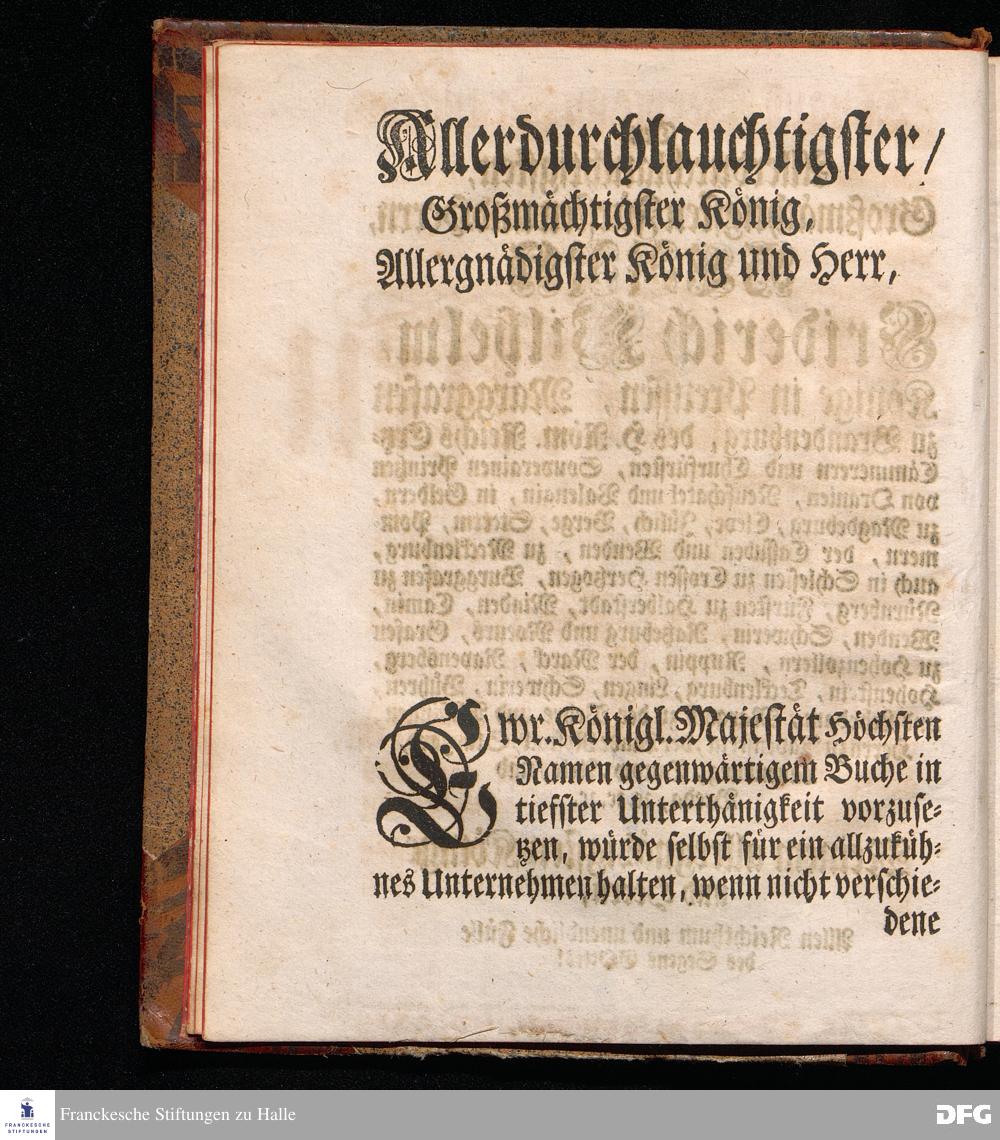 Allerdurchlauchtigster/
Großmächtigster König,
Allergnädigster König und Herr,
Ewr. Königl. Majestät Höchsten
Namen gegenwärtigem Buche in
tieffster Unterthänigkeit vorzuse-
tzen, würde selbst für ein allzuküh-
nes Unternehmen halten, wenn nicht verschie-
dene
FRANCKESCHE
STIFTUNGEN
Franckesche Stiftungen zu Halle
DFG